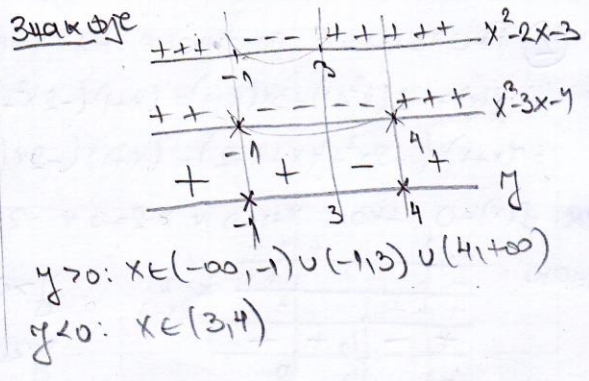 Знак фје
+ + + - - - + + + + + x²-2x-3
-1 3
+ + - - - - + + + x²-3x-4
-1 4
+ + - + y
-1 3 4
y>0: x∈(-∞,-1)∪(-1,3)∪(4,+∞)
y<0: x∈(3,4)